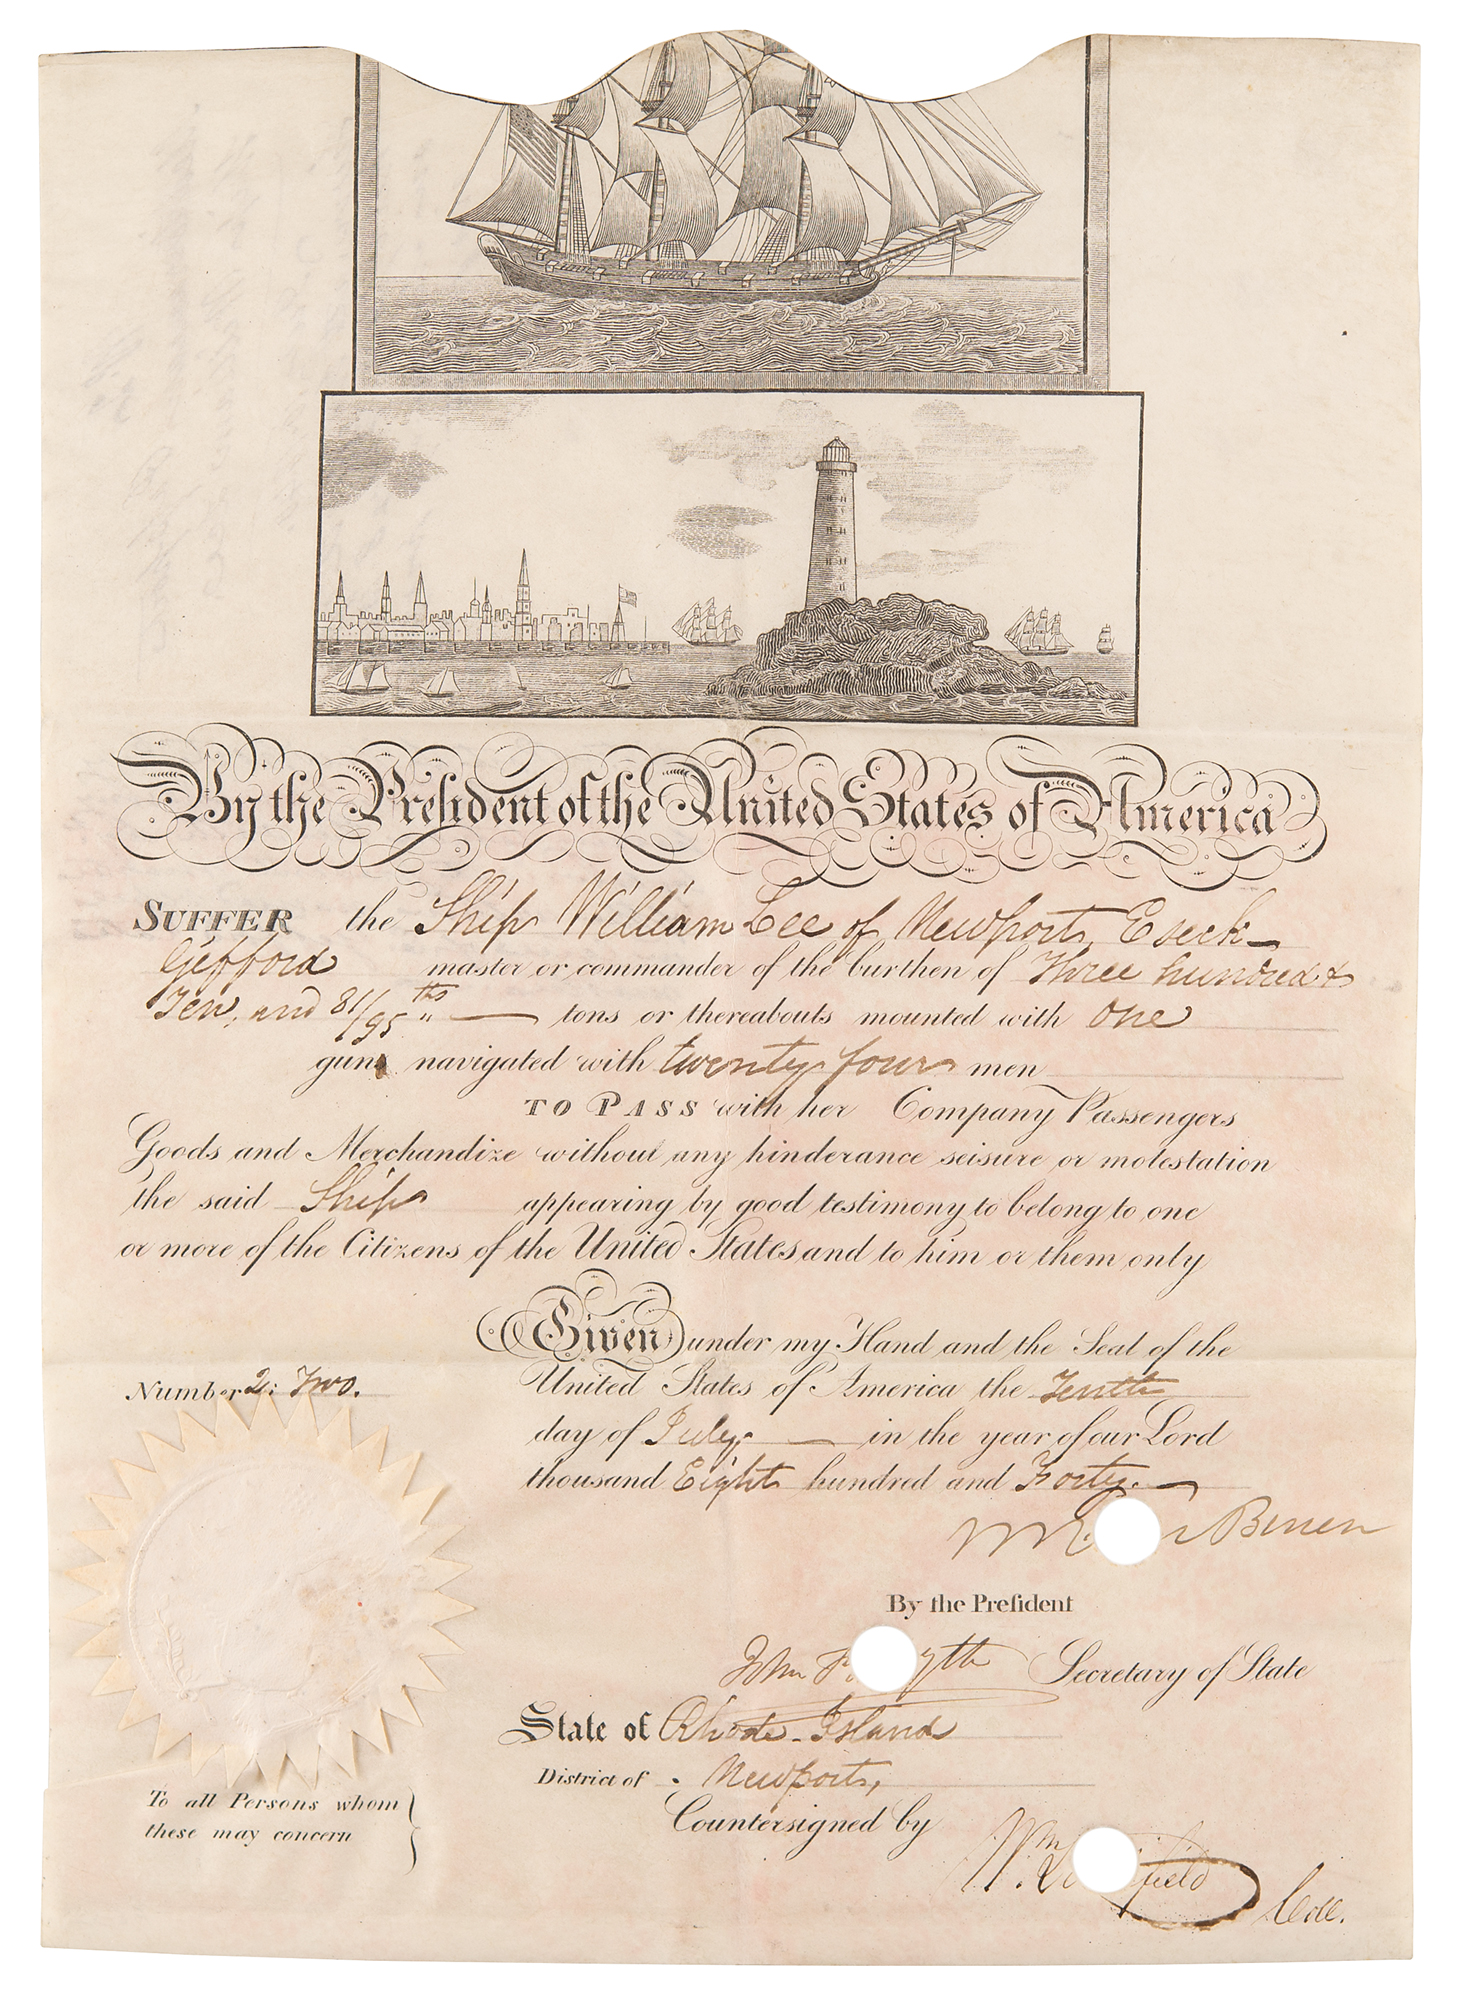 By the President of the United States of America
SUFFER the Ship William Lee of Newport, Eseek
Gifford master or commander of the burthen of Three hundred &
Ten, and 81/95 ths tons or thereabouts mounted with One
gun navigated with twenty four men
TO PASS with her Company Passengers
Goods and Merchandize without any hinderance seisure or molestation
the said Ship appearing by good testimony to belong to one
or more of the Citizens of the United States and to him or them only
Given under my Hand and the Seal of the
United States of America the Tenth
day of July, in the year of our Lord
thousand Eight hundred and Forty.
Number 2: Two.
M. Buren
By the President
John Secretary of State
State of Rhode-Island
District of Newport,
Countersigned by
Wm Coll.
To all Persons whom
these may concern